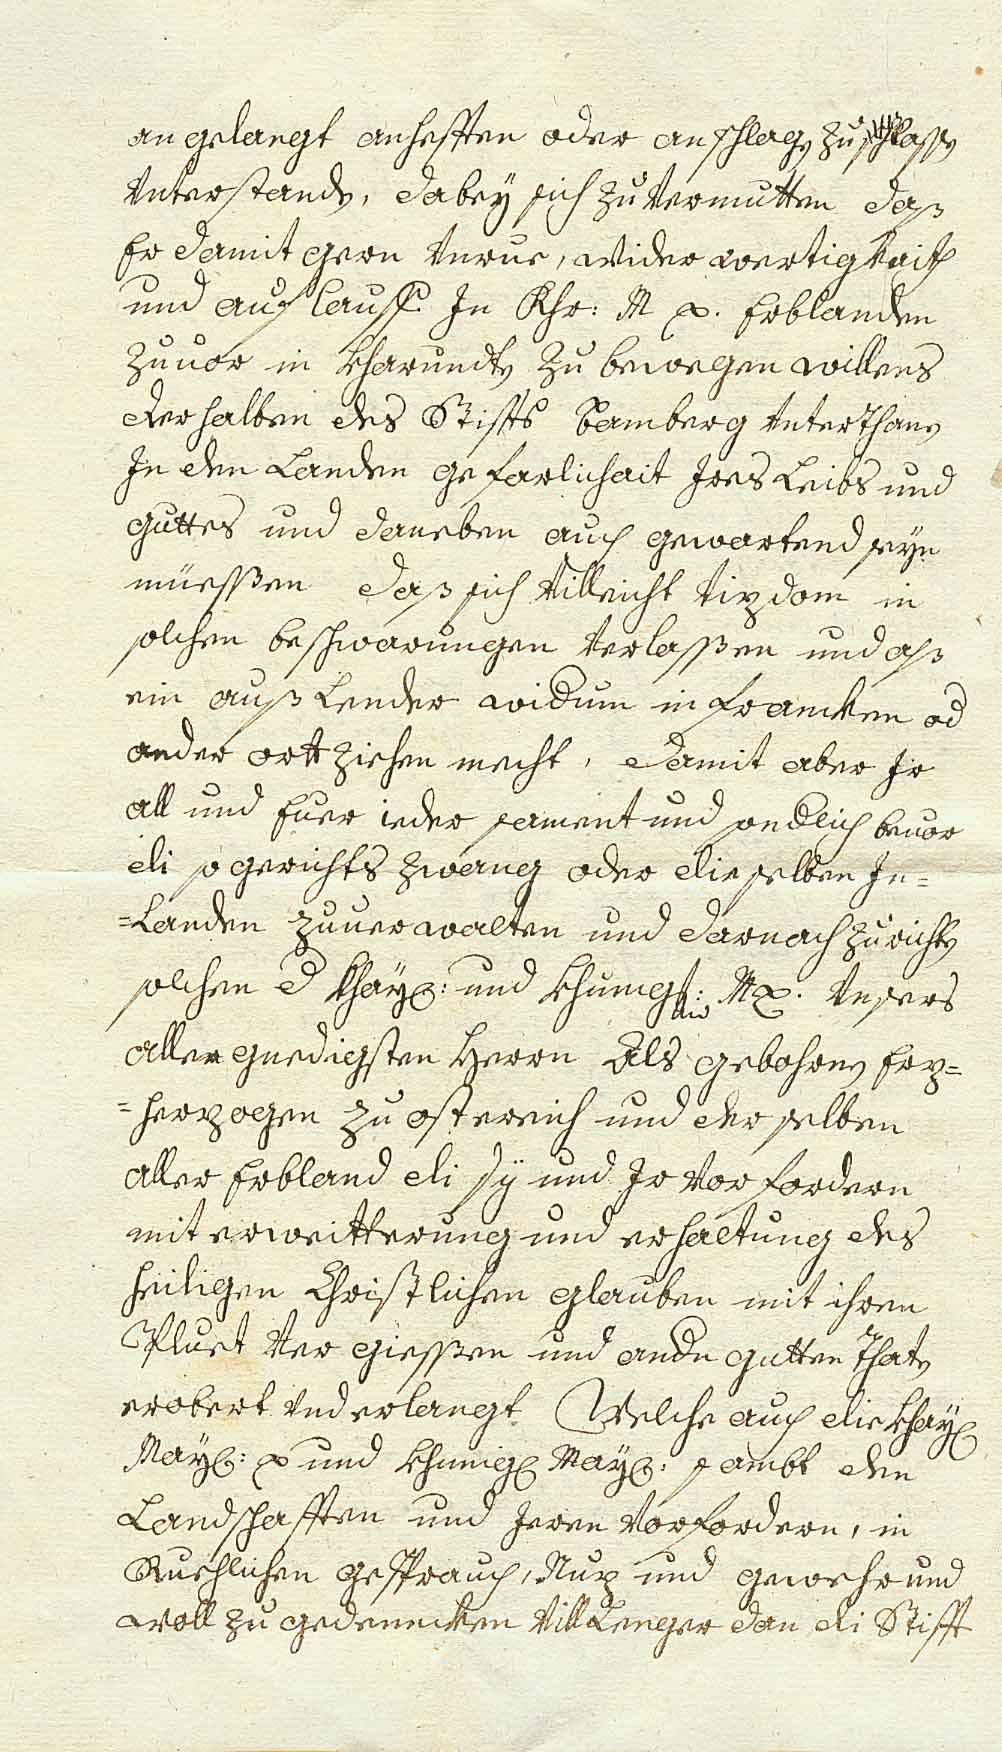 angelangt anhefften oder anschlagen zu lassen
Vnterstanden, dabeÿ sich zu Vermutten daß
Er damit gern Vnrue, Widerwertigkait
und auflauff In Khr: M x. Erblanden
zuuor in Kharundten zu bewegen willens
derhalben des Stiffts Bamberg Vnterthanen
In den Landen gefarlichait Ires Leibs und
guttes und daneben auch gewartend seÿn
müessen daß sich Villeicht Vizdom in
solchen beschwarungen Verlassen und alß
ein außlender widum in francken od
ander ortt ziehen mecht, damit aber Ir
all und Euer ieder sament und sondlich beuor
di so gerichts zwang oder dieselben In=
=Landen zuuerwalten und darnach zurichten
solchen d Khaÿ: und Khunigl: Mx. Vnsers
allergnedigsten Herrn Als gebohrnen Erz=
=herzogen zu ostereich und derselben
aller Erbland di sÿ und Ir Vorfordern
mit erweitterung und erhaltung des
heiligen Christlichen glauben mit ihren
Pluet Vergiessen und andn gutten Thaten
erobert Vnd erlangt Welche auch die Khaÿ
Maÿ: x und Khunigl Maÿ: sambt den
Landschafften und Iren Vorfordern, in
Ruehlichen gesprauch, Nuz und gewehr und
woll zu gedenncken Vill Lenger dan di Stifft